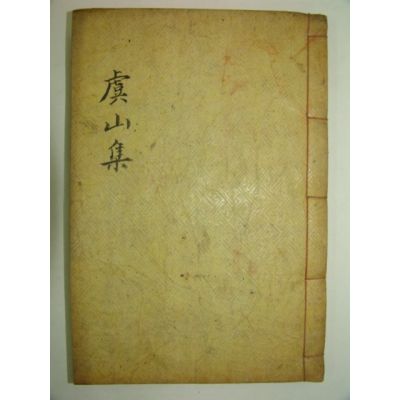 虞山集